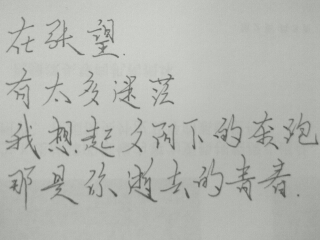 在张望.
有太多迷茫
我想起夕阳下的奔跑
那是你逝去的青春.